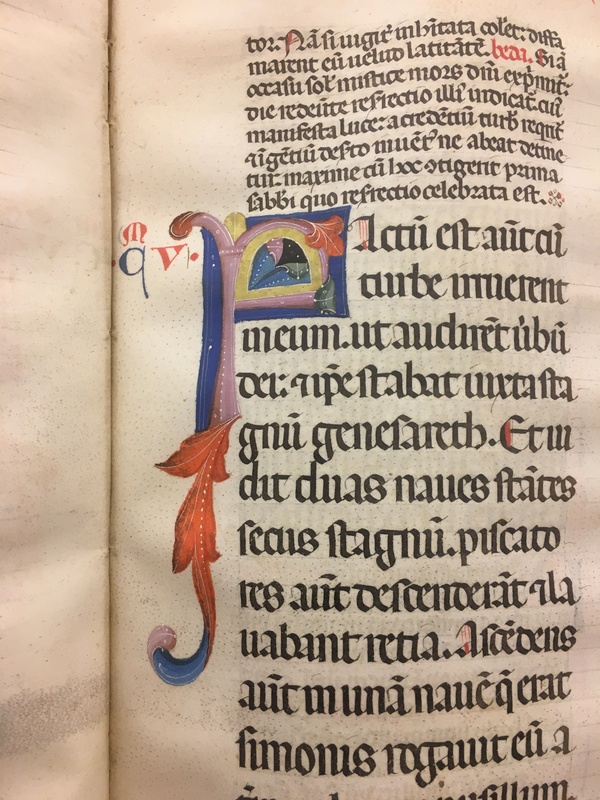 tor. Nā si uigił inhītata colet: diffa
marent eū uelud latitātē. beda. Si ā
occasū sol mistice mors dñi exp̄mit:
die redeūte resrectio illi indicat. cui
manifesta luce: a credētiū turb reqrit̄
⁊ īgētiū desto muēt ne abeat detine
tur. maxime cū hoc ɔtigerit prima
sabbi quo resrectio celebrata est.
m̄
qͥ v.
Factū est aūt cū
turbe irruerent
in eum. ut audirēt ūbū
dei: ⁊ ip̄e stabat iuxta sta
gnū genesareth. Et ui
dit duas naues stātes
secus stagnū. piscato
res aūt descenderāt ⁊ la
uabant retia. Ascēdens
aūt in unā nauē q̄ erat
simonis rogauit eū a